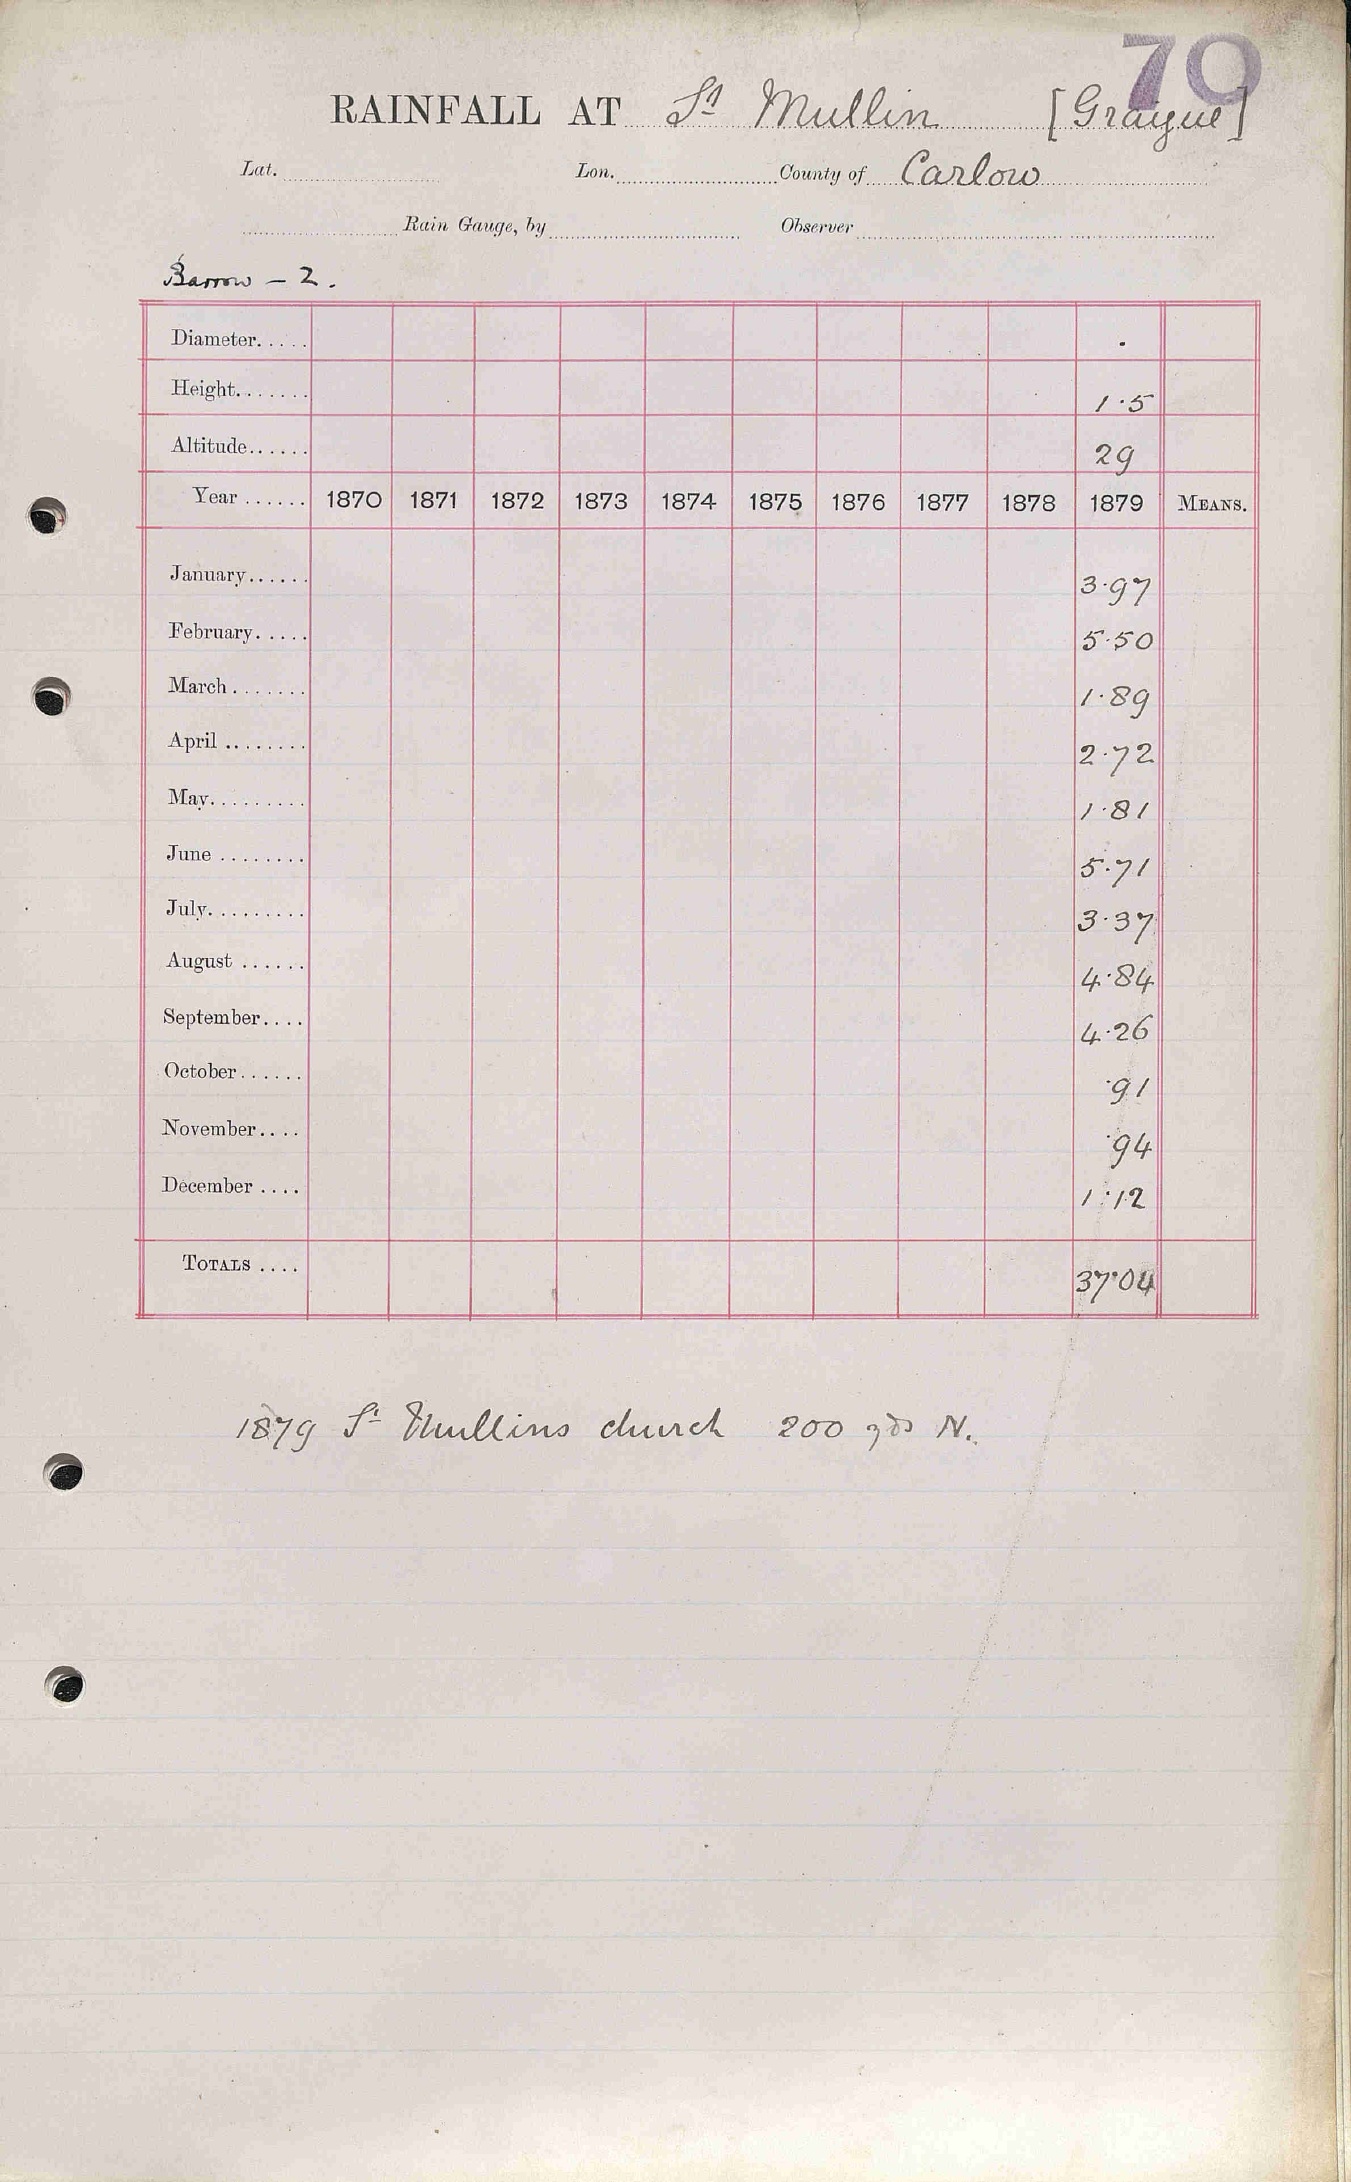 70
RAINFALL AT St Mullin [Graigue]
Lat. Lon. County of Carlow
Rain Gauge, by Observer
Barrow - 2.
Diameter.....
Height....... 1·5
Altitude...... 29
Year ...... 1870 1871 1872 1873 1874 1875 1876 1877 1878 1879 MEANS.
January...... 3·97
February..... 5·50
March ....... 1·89
April ........ 2·72
May......... 1·81
June ........ 5·71
July......... 3·37
August ...... 4·84
September.... 4·26
October...... ·91
November.... ·94
December .... 1·12
TOTALS .... 37·04
1879 St Mullins church 200 yds N.